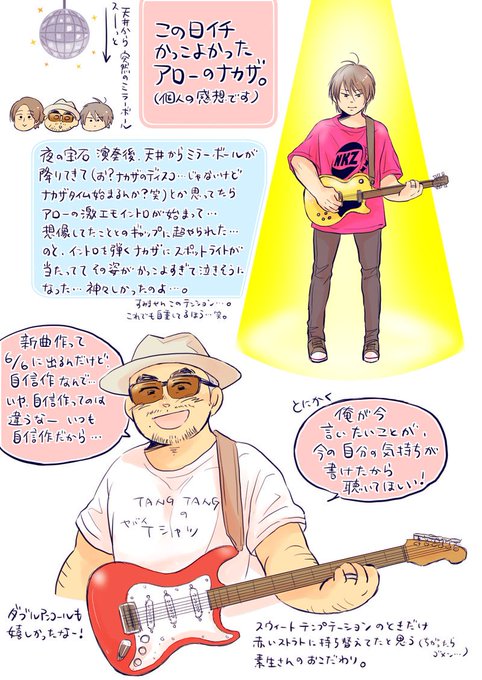 天井から突然のミラーボール
スーーっと
この日イチ
かっこよかった
アローのナカザ。
(個人の感想です)
夜の宝石 演奏後、天井からミラーボールが
降りてきて(お?ナカザのディスコ…じゃないけど
ナカザタイム始まるんか?笑)とか思ってたら
アローの激エモイントロが始まって…
想像してたこととのギャップに超やられた…
のと、イントロを弾くナカザにスポットライトが
当たってて その姿がかっこよすぎて泣きそうに
なった…神々しかったのよ…。
すみません このテンション…。
これでも自重してるほう…笑。
NKZ
新曲作って
6/6に出るんだけど、
自信作なんで…
いや、自信作ってのは
違うなー いつも
自信作だから…
とにかく
俺が今
言いたいことが、
今の自分の気持ちが
書けたから
聴いてほしい!
TANG TANG
の
ヤバイ
Tシャツ
ダブルアンコールも
嬉しかったなー!
スウィートテンプテーションのときだけ
赤いストラトに持ち替えてたと思う(ちがったら
ゴメン…)
素生さんのおこだわり。